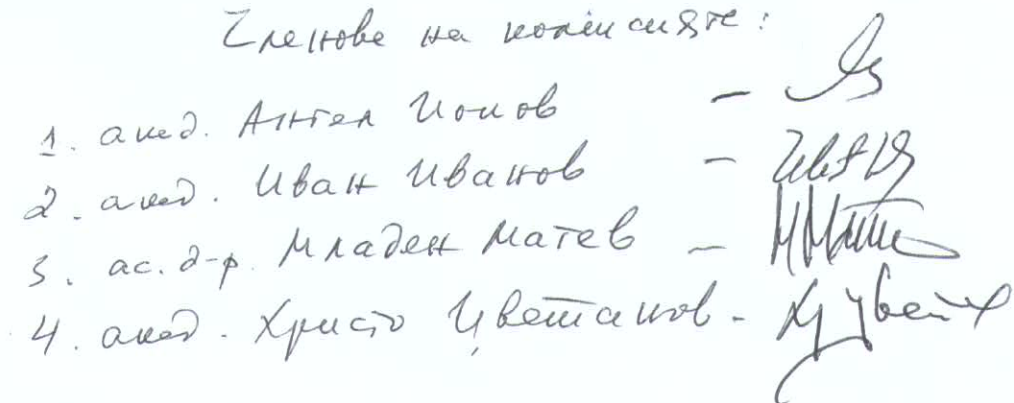 Членове на комисията:
1. акад. Ангел Попов -
2. акад. Иван Иванов -
3. ас. д-р. Младен Матев -
4. акад. Христо Цветанов -